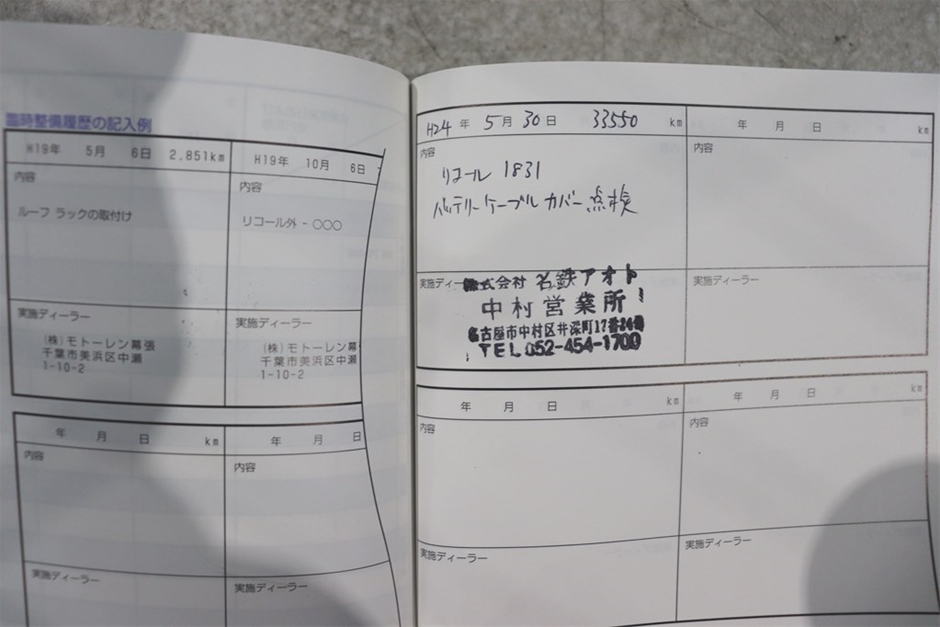 臨時整備履歴の記入例
H19年 5月 6日 2,851km
内容
ルーフ ラックの取付け
実施ディーラー
(株)モトーレン幕張
千葉市美浜区中瀬
1-10-2
H19年 10月 6日
内容
リコール外 - ○○○
実施ディーラー
(株)モトーレン幕
千葉市美浜区中瀬
1-10-2
年 月 日 km
内容
実施ディーラー
年 月 日
内容
実施ディーラー
H24年 5月 30日 33550 km
内容
リコール 1831
バッテリーケーブル カバー 点検
実施ディーラー
株式会社 名鉄アオト
中村営業所
名古屋市中村区井深町17番
TEL 052-454-1700
年 月 日 km
内容
実施ディーラー
年 月 日 km
内容
実施ディーラー
年 月 日 km
内容
実施ディーラー